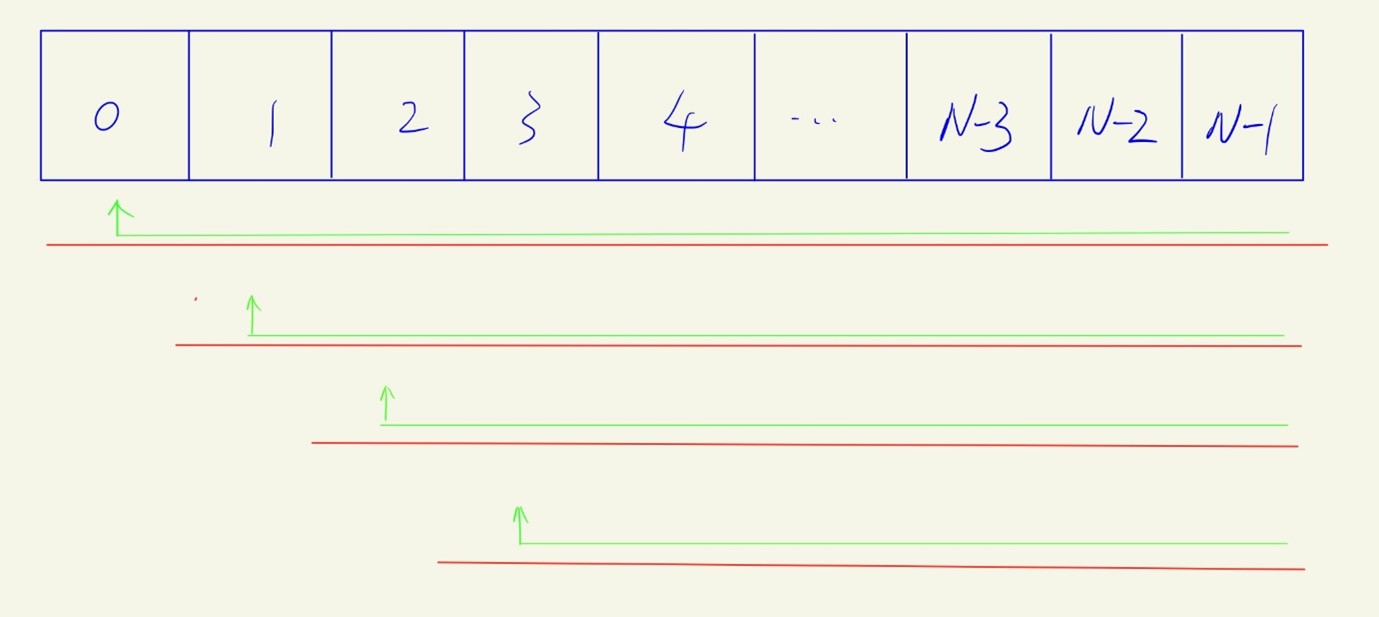 0 1 2 3 4 ... N-3 N-2 N-1